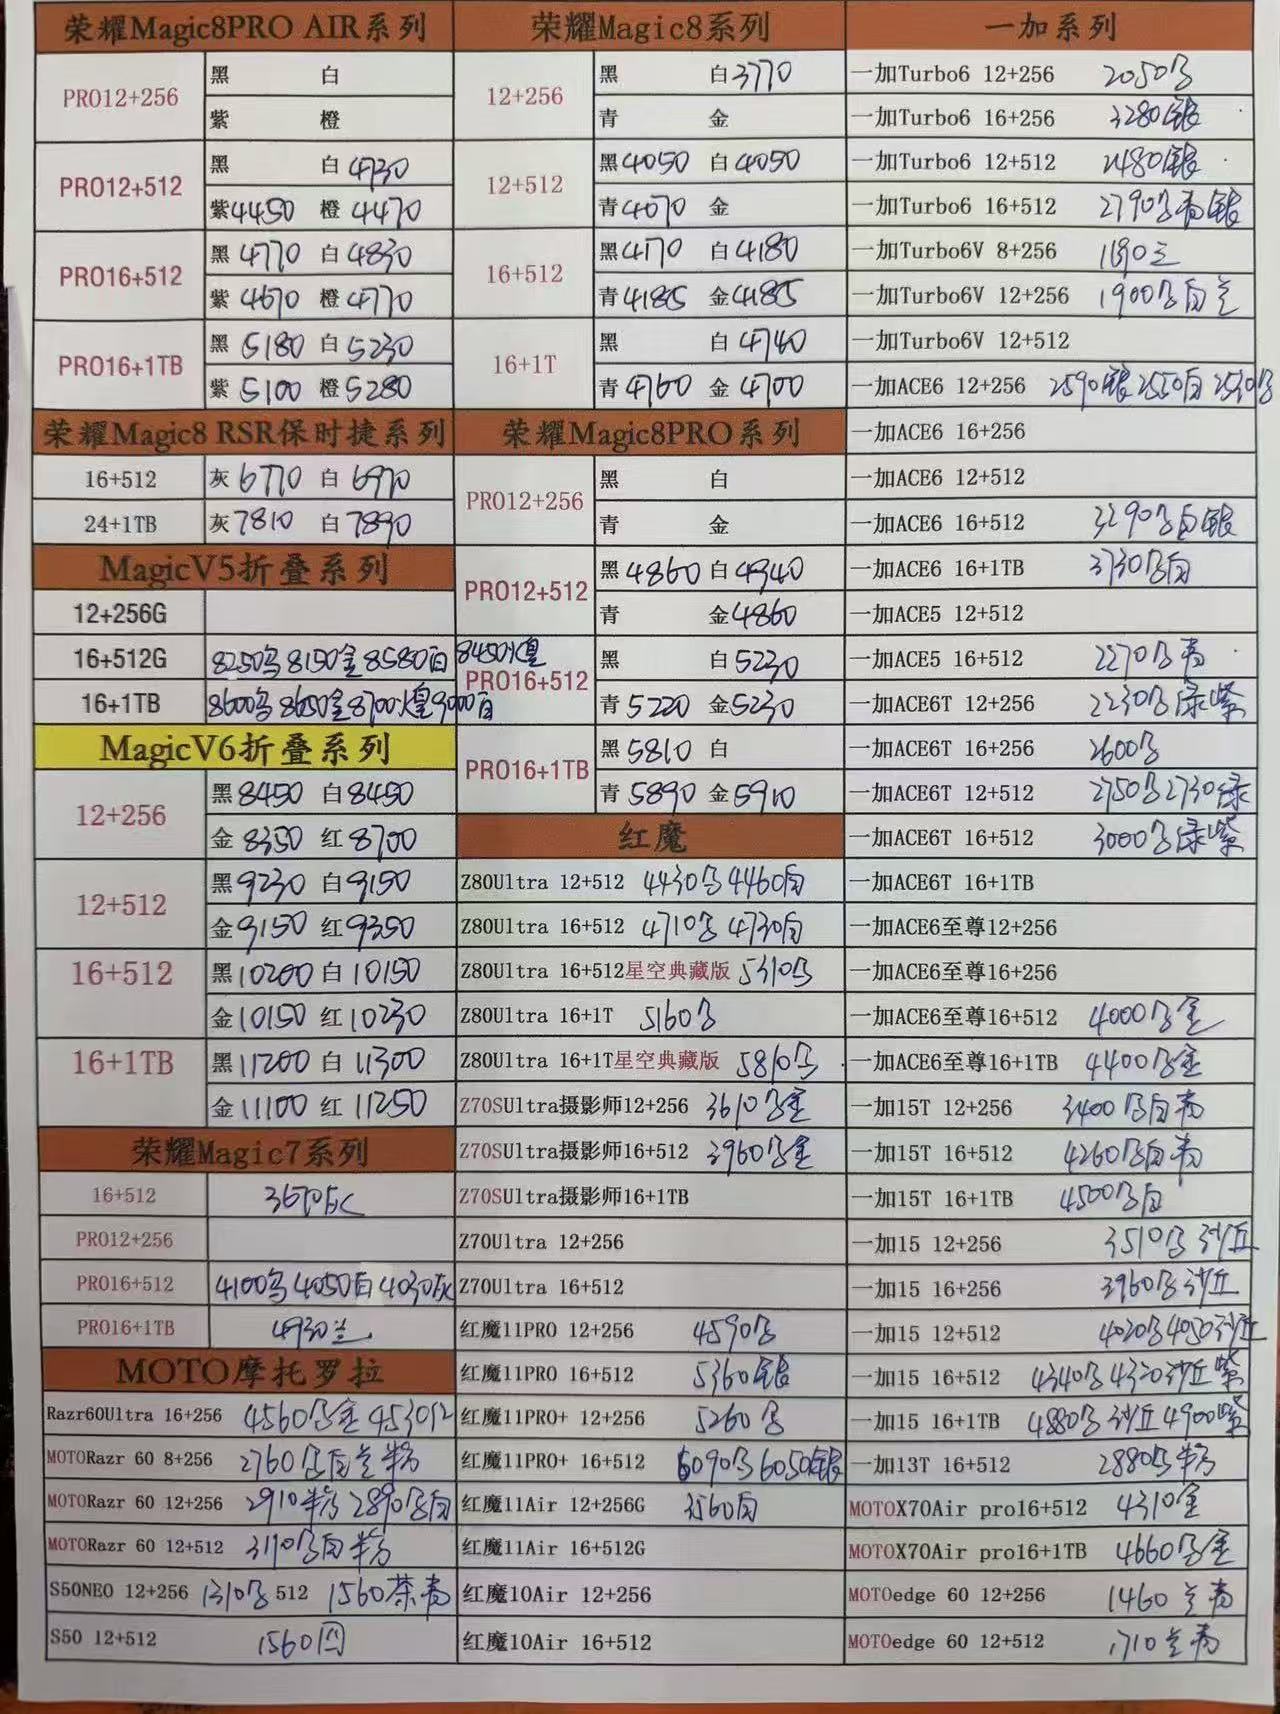 荣耀Magic8PRO AIR系列
PRO12+256
黑 白
紫 橙
PRO12+512
黑 白4730
紫4450 橙4470
PRO16+512
黑4770 白4830
紫4670 橙4770
PRO16+1TB
黑5180 白5230
紫5100 橙5280
荣耀Magic8 RSR保时捷系列
16+512 灰6770 白6970
24+1TB 灰7810 白7890
MagicV5折叠系列
12+256G
16+512G 8250 8150金 8580白 8450
16+1TB 8600 8650金 8700 9000白
MagicV6折叠系列
12+256
黑8450 白8450
金8350 红8700
12+512
黑9230 白9150
金9150 红9350
16+512
黑10200 白10150
金10150 红10230
16+1TB
黑11200 白11300
金11100 红11250
荣耀Magic7系列
16+512 3670灰
PRO12+256
PRO16+512 4100 4050白 4030灰
PRO16+1TB 4930兰
MOTO摩托罗拉
Razr60Ultra 16+256 4560 4530
MOTORazr 60 8+256 2760
MOTORazr 60 12+256 2910 2890
MOTORazr 60 12+512 3110
S50NEO 12+256 1310 512 1560茶青
S50 12+512 1560
荣耀Magic8系列
12+256
黑 白3770
青 金
12+512
黑4050 白4050
青4070 金
16+512
黑4170 白4180
青4185 金4185
16+1T
黑 白4740
青4760 金4700
荣耀Magic8PRO系列
PRO12+256
黑 白
青 金
PRO12+512
黑4860 白4940
青 金4860
PRO16+512
黑 白5230
青5220 金5230
PRO16+1TB
黑5810 白
青5890 金5910
红魔
Z80Ultra 12+512 4430 4460白
Z80Ultra 16+512 4710 4730白
Z80Ultra 16+512星空典藏版 5310
Z80Ultra 16+1T 5160
Z80Ultra 16+1T星空典藏版 5810
Z70SUltra摄影师12+256 3610
Z70SUltra摄影师16+512 3960
Z70SUltra摄影师16+1TB
Z70Ultra 12+256
Z70Ultra 16+512
红魔11PRO 12+256 4590
红魔11PRO 16+512 5360银
红魔11PRO+ 12+256 5260
红魔11PRO+ 16+512 6090 6050银
红魔11Air 12+256G 3560白
红魔11Air 16+512G
红魔10Air 12+256
红魔10Air 16+512
一加系列
一加Turbo6 12+256 2050
一加Turbo6 16+256 3280银
一加Turbo6 12+512 2480银
一加Turbo6 16+512 2790
一加Turbo6V 8+256
一加Turbo6V 12+256 1900
一加Turbo6V 12+512
一加ACE6 12+256 2590银 2550白 2530
一加ACE6 16+256
一加ACE6 12+512
一加ACE6 16+512 3290
一加ACE6 16+1TB 3730
一加ACE5 12+512
一加ACE5 16+512 2270
一加ACE6T 12+256 2230
一加ACE6T 16+256 2600
一加ACE6T 12+512 2750 2730绿
一加ACE6T 16+512 3000
一加ACE6T 16+1TB
一加ACE6至尊12+256
一加ACE6至尊16+256
一加ACE6至尊16+512 4000
一加ACE6至尊16+1TB 4400
一加15T 12+256 3400
一加15T 16+512 4260
一加15T 16+1TB 4500
一加15 12+256 3510 沙丘
一加15 16+256 3960 沙丘
一加15 12+512 4020 4050沙丘
一加15 16+512 4340 4320沙丘紫
一加15 16+1TB 4880 沙丘 4900紫
一加13T 16+512 2880
MOTOX70Air pro16+512 4310金
MOTOX70Air pro16+1TB 4660
MOTOedge 60 12+256 1460 兰青
MOTOedge 60 12+512 1710兰青